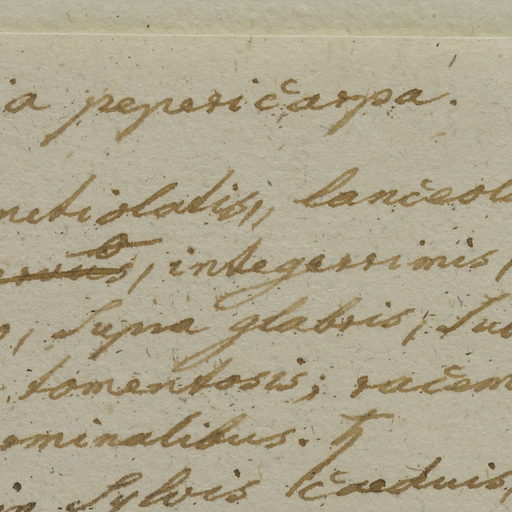 ia pepericarpa.
petiolatis, lanceol
integerrimis,
supra glabris, sub
tomentosis; racem
erminalibus. ♄
in Sylvis caeduis,